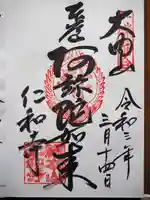 大内山
阿弥陀如来
仁和寺
令和三年
三月十四日